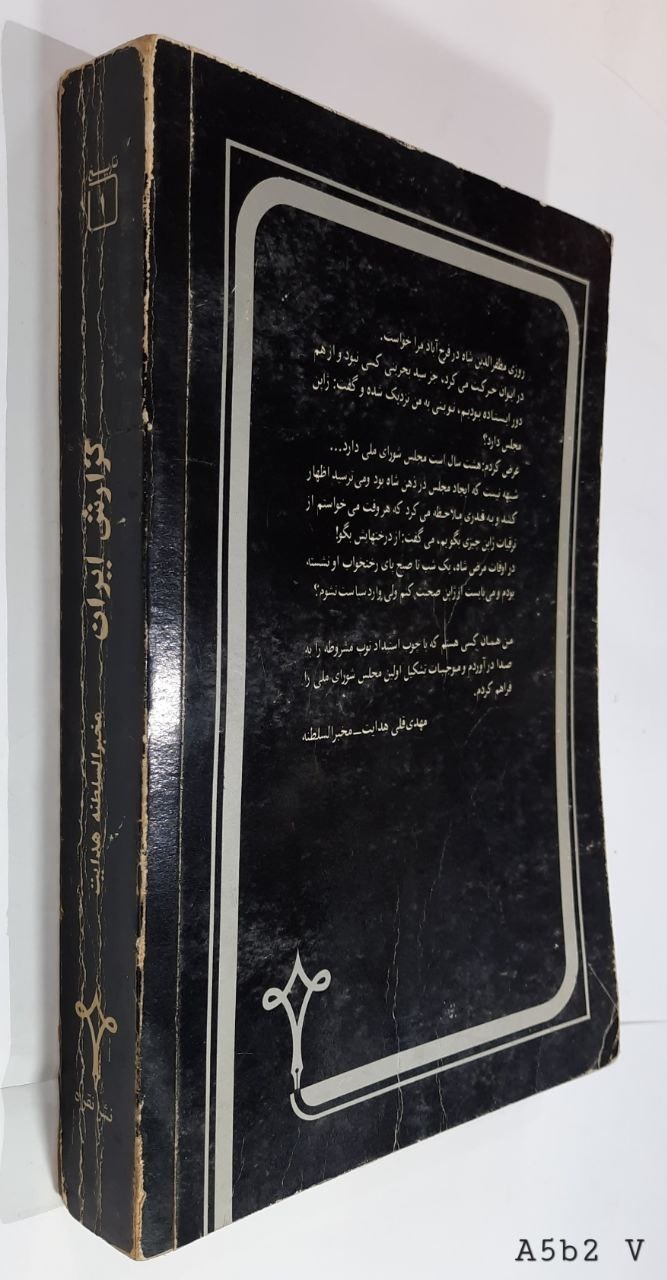 تاریخ
گزارش ایران
مخبرالسلطنه هدایت
نشر نقره
روزی مظفرالدین شاه در فرح آباد مرا خواست.
در ایوان حرکت می کرد، جز سید بحرینی کسی نبود و از هم
دور ایستاده بودیم، نوبتی به من نزدیک شده و گفت: ژاپن
مجلس دارد؟
عرض کردم: هشت سال است مجلس شورای ملی دارد...
شبهه نیست که ایجاد مجلس در ذهن شاه بود ومی ترسید اظهار
کند و به قدری ملاحظه می کرد که هر وقت می خواستم از
ترقیات ژاپن چیزی بگویم، می گفت: از درختهایش بگو!
در اوقات مرض شاه، یک شب تا صبح پای رختخواب او نشسته
بودم و می بایست از ژاپن صحبت کنم ولی وارد سیاست نشوم؟
من همان کسی هستم که با چوب استبداد توپ مشروطه را به
صدا درآوردم و موجبات تشکیل اولین مجلس شورای ملی را
فراهم کردم.
مهدی قلی هدایت ـ مخبرالسلطنه
A5b2 V